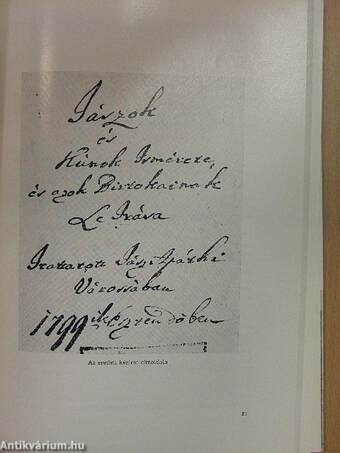 Jászok
és
Kúnok Ismérete,
és azok Birtokainak
Le Irása
Irattatott Jász Apáthi
Várossában
1799 ik Esztendőben
Az eredeti kézirat címoldala
21
Antikvárium.hu